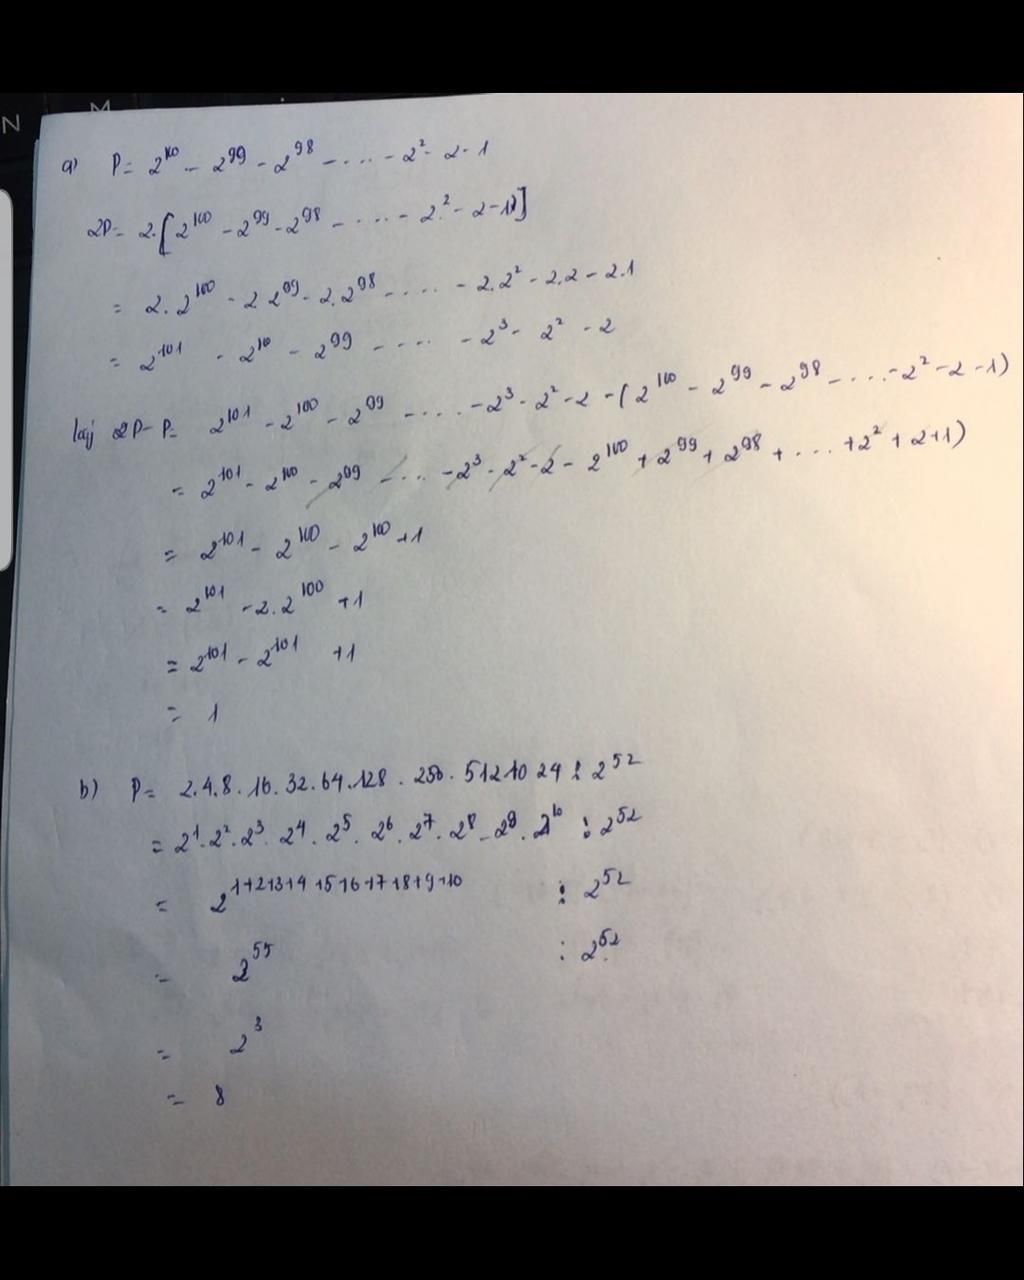 N M
a) P = 2^100 - 2^99 - 2^98 - .... - 2^2 - 2 - 1
2P = 2.[2^100 - 2^99 - 2^98 - .... - 2^2 - 2 - 1)]
= 2.2^100 - 2.2^99 - 2.2^98 - .... - 2.2^2 - 2.2 - 2.1
= 2^101 - 2^100 - 2^99 - .... - 2^3 - 2^2 - 2
lấy 2P - P = 2^101 - 2^100 - 2^99 - .... - 2^3 - 2^2 - 2 - (2^100 - 2^99 - 2^98 - .... - 2^2 - 2 - 1)
= 2^101 - 2^100 - 2^99 - ... - 2^3 - 2^2 - 2 - 2^100 + 2^99 + 2^98 + ... + 2^2 + 2 + 1)
= 2^101 - 2^100 - 2^100 + 1
= 2^101 - 2.2^100 + 1
= 2^101 - 2^101 + 1
= 1
b) P = 2.4.8.16.32.64.128.256.512.1024 : 2^52
= 2^1.2^2.2^3.2^4.2^5.2^6.2^7.2^8.2^9.2^10 : 2^52
= 2^1+2+3+4+5+6+7+8+9+10 : 2^52
= 2^55 : 2^52
= 2^3
= 8